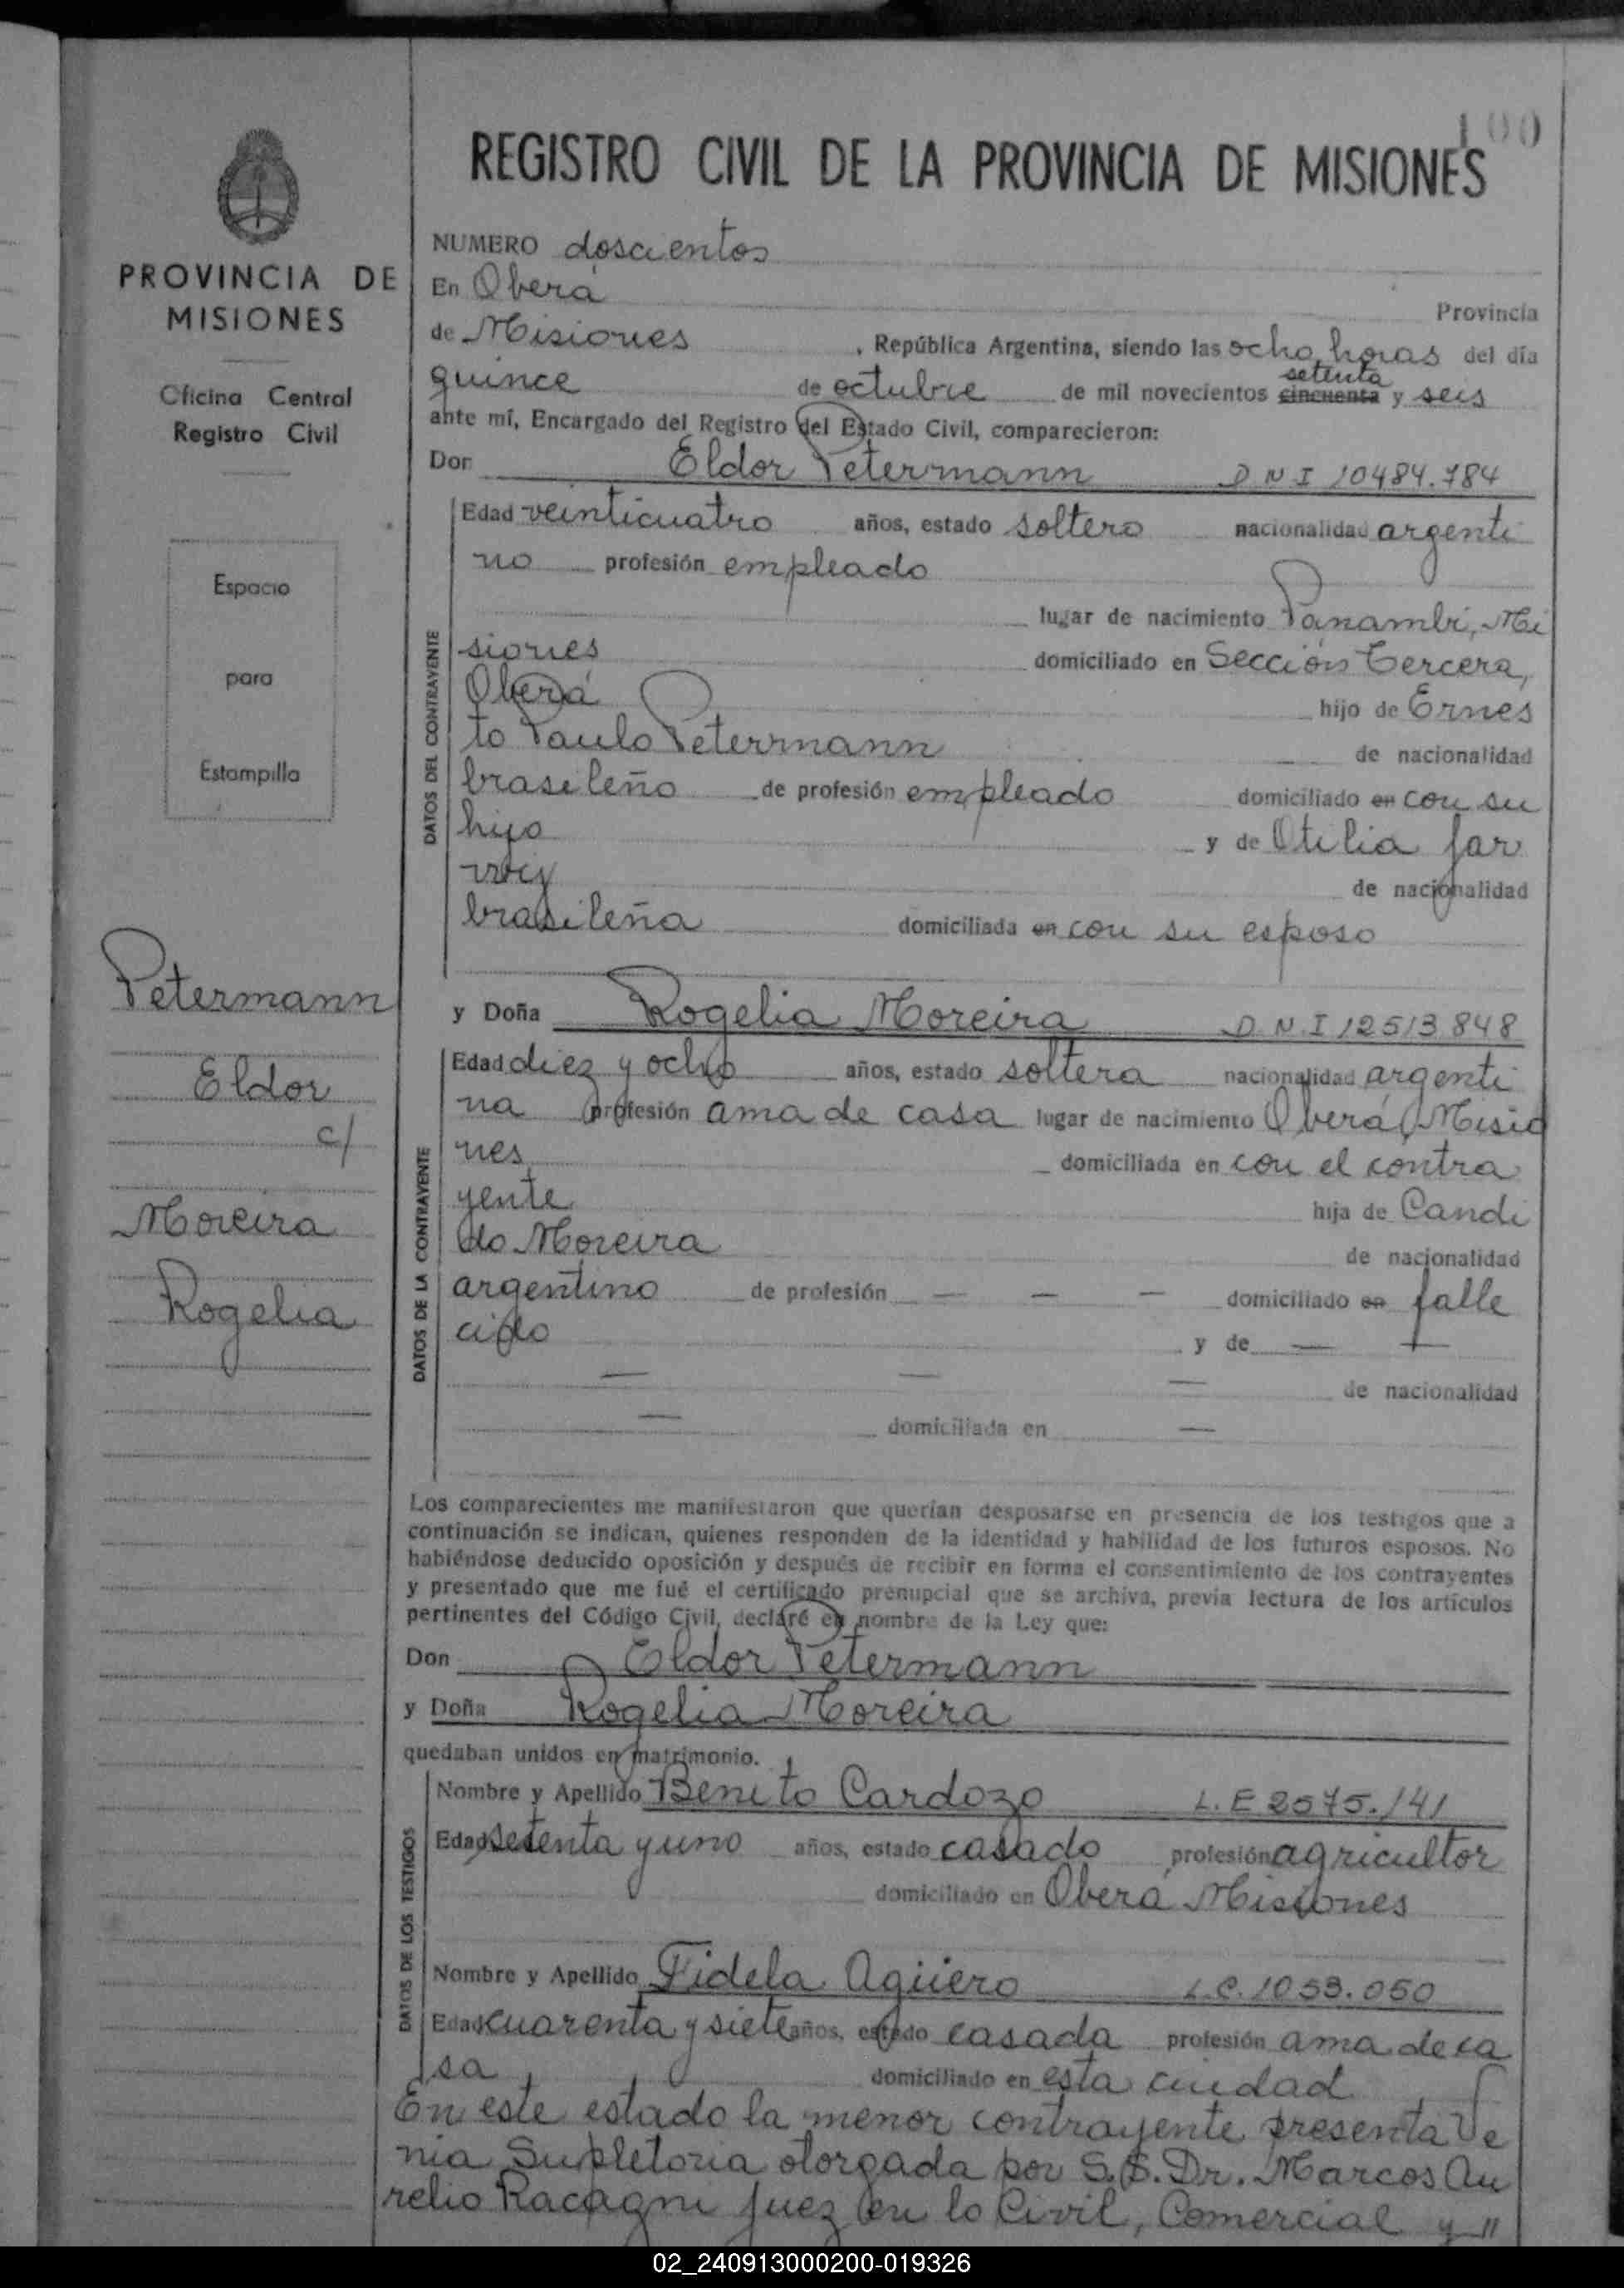 100
REGISTRO CIVIL DE LA PROVINCIA DE MISIONES
PROVINCIA DE
MISIONES
Oficina Central
Registro Civil
Espacio
para
Estampilla
Petermann
Eldor
c/
Moreira
Rogelia
NUMERO doscientos
En Oberá
Provincia
de Misiones , República Argentina, siendo las ocho horas del día
setenta
quince de octubre de mil novecientos cincuenta y seis
ante mí, Encargado del Registro del Estado Civil, comparecieron:
Don Eldor Petermann D N I 10484.784
DATOS DEL CONTRAYENTE
Edad veinticuatro años, estado soltero nacionalidad argenti
no profesión empleado
lugar de nacimiento Panambí, Mi
siones domiciliado en Sección Tercera,
Oberá hijo de Ernes
to Paulo Petermann de nacionalidad
brasileño de profesión empleado domiciliado en con su
hijo y de Otilia Jar
de nacionalidad
brasileña domiciliada en con su esposo
y Doña Rogelia Moreira D.N.I 12513848
DATOS DE LA CONTRAYENTE
Edad diez y ocho años, estado soltera nacionalidad argenti
na profesión ama de casa lugar de nacimiento Oberá, Misio
nes domiciliada en con el contra
yente hija de Candi
do Moreira de nacionalidad
argentino de profesión — — — domiciliado en falle
cido y de — —
— — — de nacionalidad
— domiciliada en —
Los comparecientes me manifestaron que querían desposarse en presencia de los testigos que a
continuación se indican, quienes responden de la identidad y habilidad de los futuros esposos. No
habiéndose deducido oposición y después de recibir en forma el consentimiento de los contrayentes
y presentado que me fué el certificado prenupcial que se archiva, previa lectura de los artículos
pertinentes del Código Civil, declaré en nombre de la Ley que:
Don Eldor Petermann
y Doña Rogelia Moreira
quedaban unidos en matrimonio.
DATOS DE LOS TESTIGOS
Nombre y Apellido Benito Cardozo L.E 2575.141
Edad setenta y uno años, estado casado profesión agricultor
domiciliado en Oberá Misiones
Nombre y Apellido Fidela Agüero L.C. 1053.050
Edad cuarenta y siete años, estado casada profesión ama de ca
sa domiciliado en esta ciudad
En este estado la menor contrayente presenta Ve
nia Supletoria otorgada por S.S. Dr. Marcos Au
relio Racagni Juez en lo Civil, Comercial y "
02_240913000200-019326